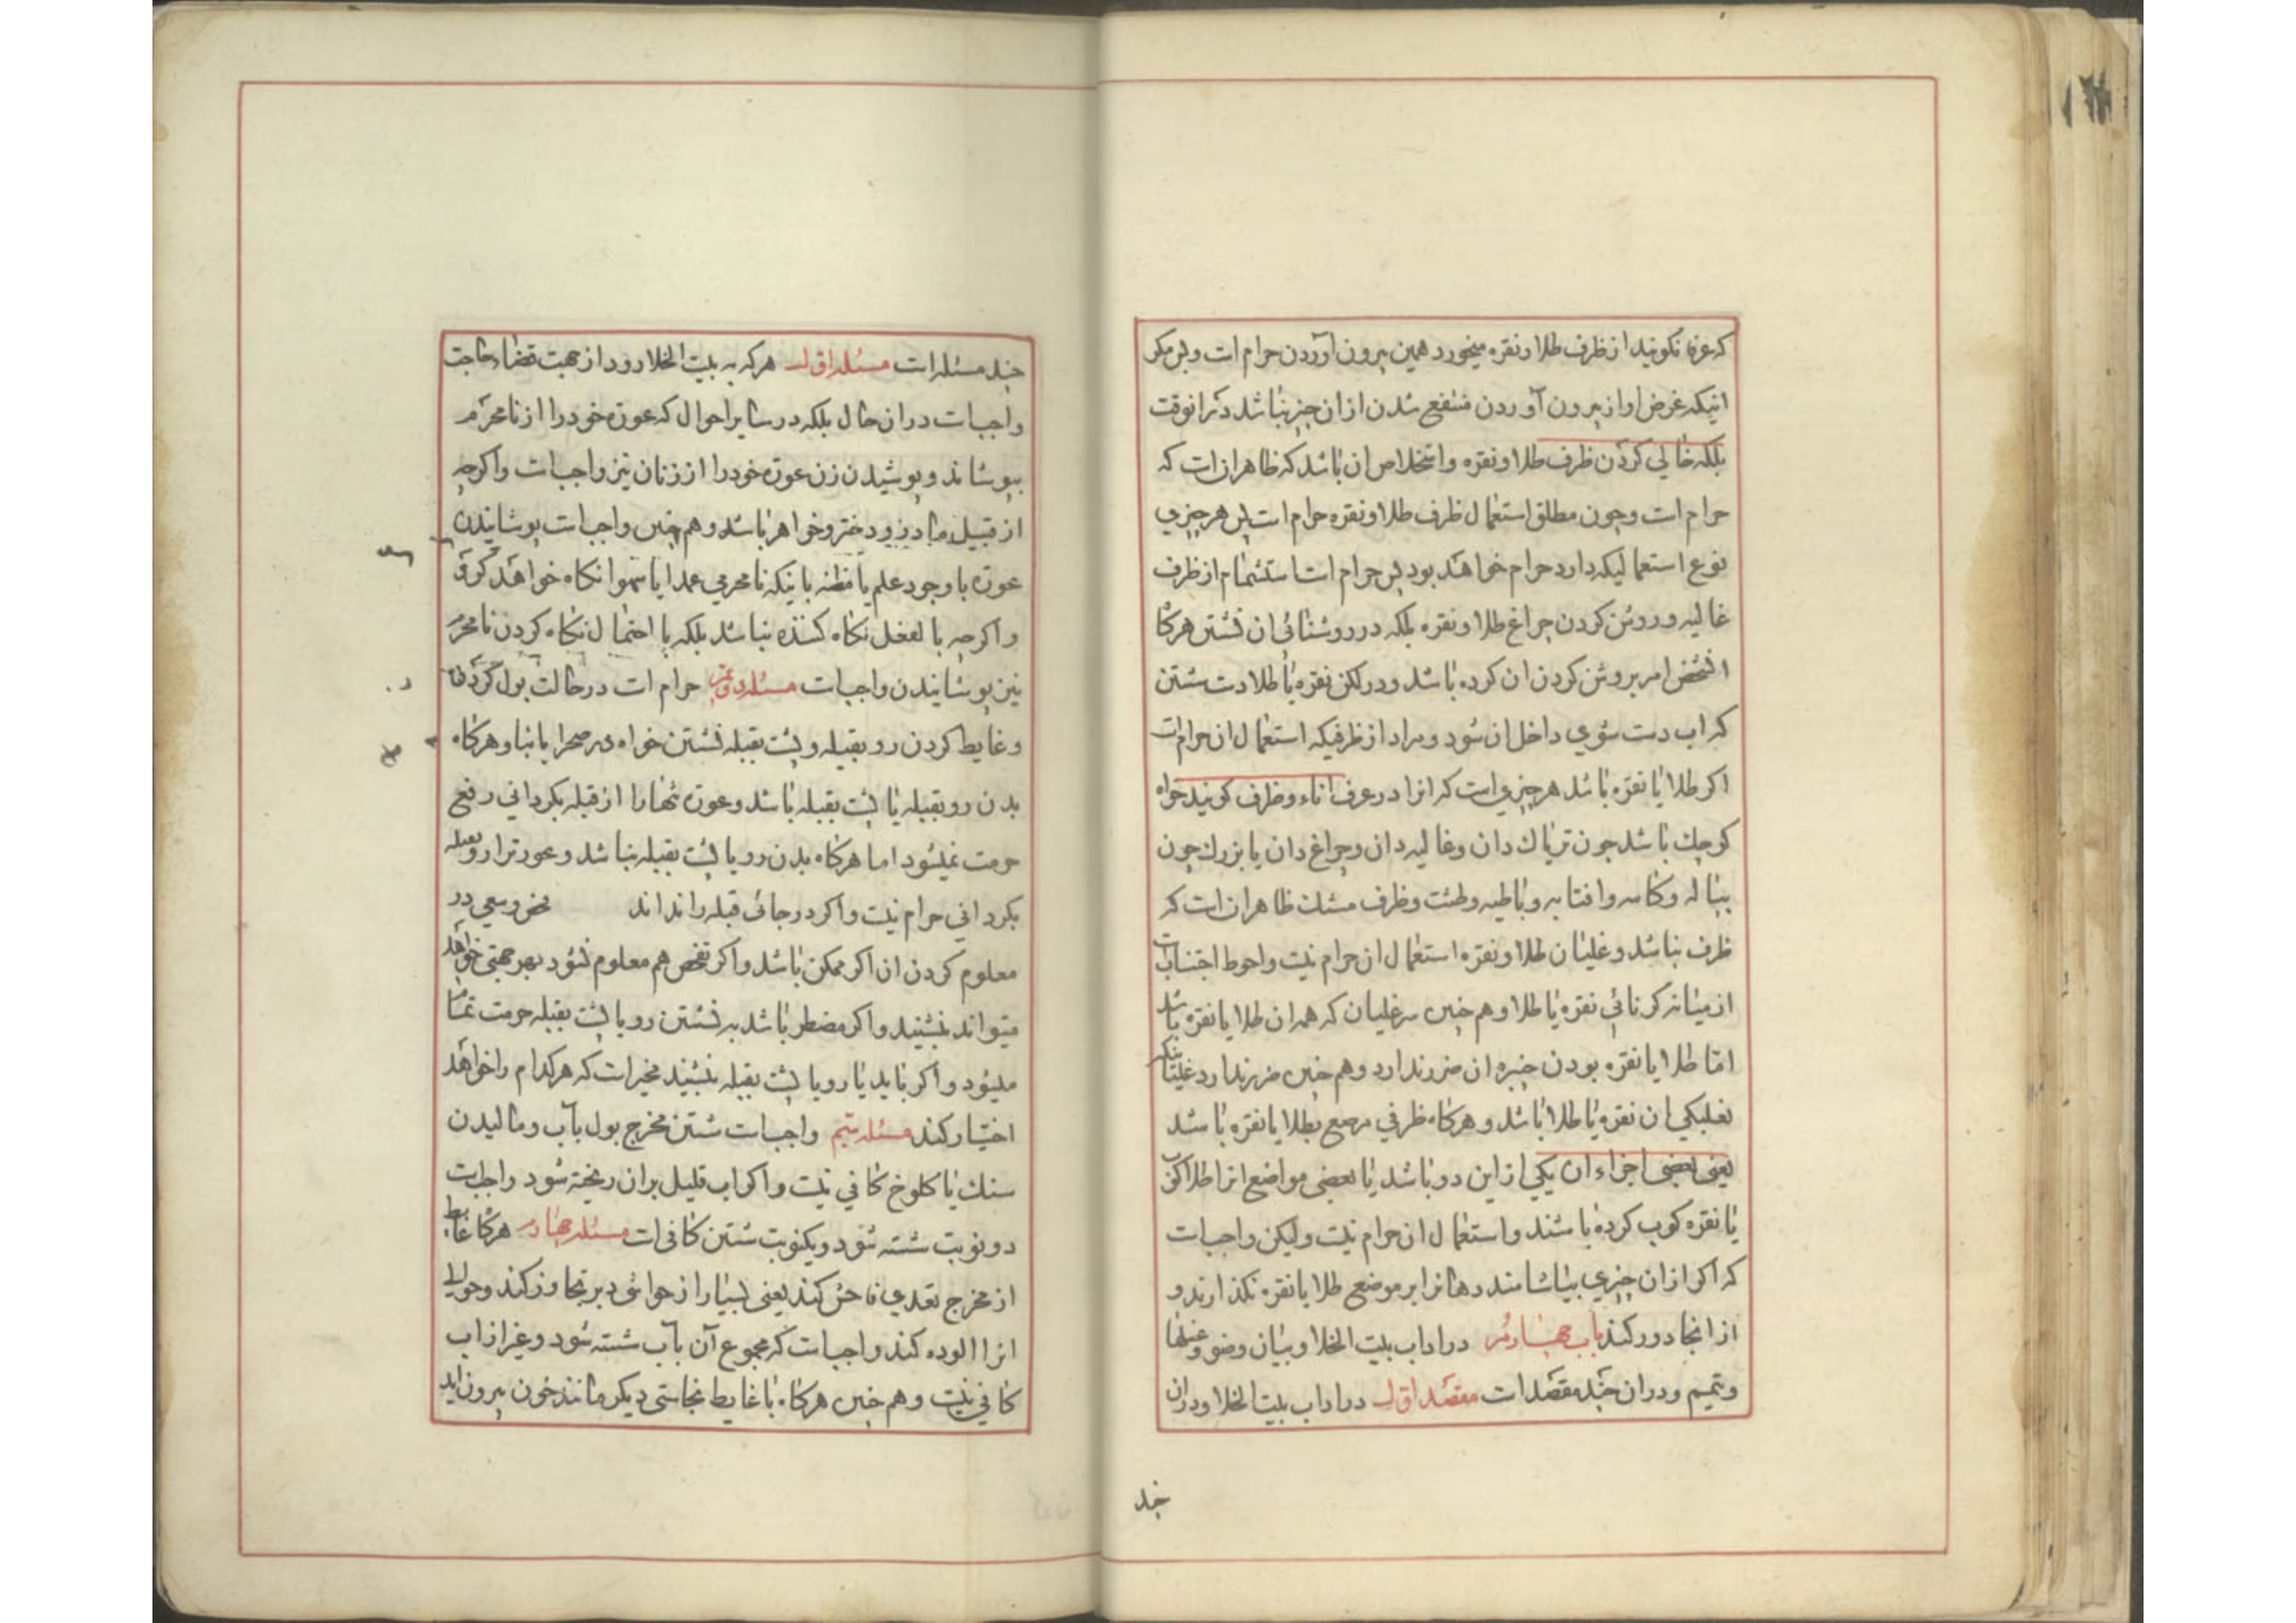 که عرفا نکویند از ظرف طلا و نقره میخورد همین بیرون آوردن حرام است و بس مکر
انیکه غرض او از بیرون آوردن منتفع شدن از ان چیز نباشد در انوقت
بلکه خالی کردن ظرف طلا و نقره و استخلاص ان باشد که ظاهر ان است که
حرام است و چون مطلق استعمال ظرف طلا و نقره حرام است پس هر چیزی
نوع استعمالیکه دارد حرام خواهد بود پس حرام است استشمام از ظرف
غالیه و روشن کردن چراغ طلا و نقره بلکه در روشنائی ان نشستن هر کاه
انشخص امر بروشن کردن ان کرده باشد و در لکن نقره یا طلا دست شستن
که اب دست شوی داخل ان شود و مراد از ظرفیکه استعمال ان حرام است
اکر طلا یا نقره باشد هر چیزی است که انرا در عرف اناء و ظرف کویند خواه
کوچک باشد چون تریاک دان و غالیه دان و چراغ دان یا بزرک چون
پیاله و کاسه و افتابه و باطیه و طشت و ظرف مشک ظاهر ان است که
ظرف نباشد و غلیان طلا و نقره استعمال ان حرام نیست و احوط اجتناب است
از میانه کرنائی نقره یا طلا و هم چنین سر غلیان که همه ان طلا یا نقره باشد
امّا طلا یا نقره بودن چنبره ان ضرر ندارد و هم چنین ضرر ندارد غلیانیکه
نعلبکی ان نقره یا طلا باشد و هر کاه ظرفی مرصع بطلا یا نقره باشد
یعنی بعضی اجزاء ان یکی از این دو باشد یا بعضی مواضع انرا طلا کوب
یا نقره کوب کرده باشند و استعمال ان حرام نیست و لیکن واجب است
که اکر از ان چیزی بیاشامند دهانرا بر موضع طلا یا نقره نکذارند و
از انجا دور کنند باب چهارم در اداب بیت الخلا و بیان وضو و غسلها
و تیمم و در ان چند مقصد است مقصد اول در اداب بیت الخلا و در ان
چند
چند مسئله است مسئله اول هر که به بیت الخلا رود از جهت قضاء حاجت
واجب است در ان حال بلکه در سایر احوال که عورة خود را از نا محرم
بپوشاند و پوشیدن زن عورة خود را از زنان نیز واجب است و اکر چه
از قبیل مادر و دختر و خواهر باشد و هم چنین واجب است پوشانیدن
عورة با وجود علم یا مظنه باینکه نا محرمی عمدا یا سهوا نکاه خواهد کرد
و اکر چه بالفعل نکاه کننده نباشد بلکه با احتمال نکاه کردن نا محرم
نیز پوشانیدن واجب است مسئله دویم حرام است در حالت بول کردن
و غایط کردن رو بقبله و پشت بقبله نشستن خواه در صحرا یا بنا و هر کاه
بدن رو بقبله یا پشت بقبله باشد و عورة تنها را از قبله بکردانی رفع
حرمت نمیشود اما هر کاه بدن رو یا پشت بقبله نباشد و عورترا رو بقبله
بکردانی حرام نیست و اکر در جائی قبله را نداند تفحص و سعی در
معلوم کردن ان اکر ممکن باشد و اکر تفحص هم معلوم نشود بهر جهتی خواهد
میتواند بنشیند و اکر مضطر باشد به نشستن رو یا پشت بقبله حرمت تمام
میشود و اکر باید یا رو یا پشت بقبله بنشیند مخیر است که هر کدام را خواهد
اختیار کند مسئله سیّم واجب است شستن مخرج بول بآب و مالیدن
سنک یا کلوخ کافی نیست و اکر اب قلیل بر ان ریخته شود واجب است
دو نوبت شسته شود و یکنوبت شستن کافی است مسئله چهارم هر کاه غایط
از مخرج تعدی فاحش کند یعنی بسیار از حواشی دبر تجاوز کند و حوالی
انرا الوده کند واجب است که مجموع آن بآب شسته شود و غیر از اب
کافی نیست و هم چنین هر کاه با غایط نجاستی دیکر مانند خون بیرون اید